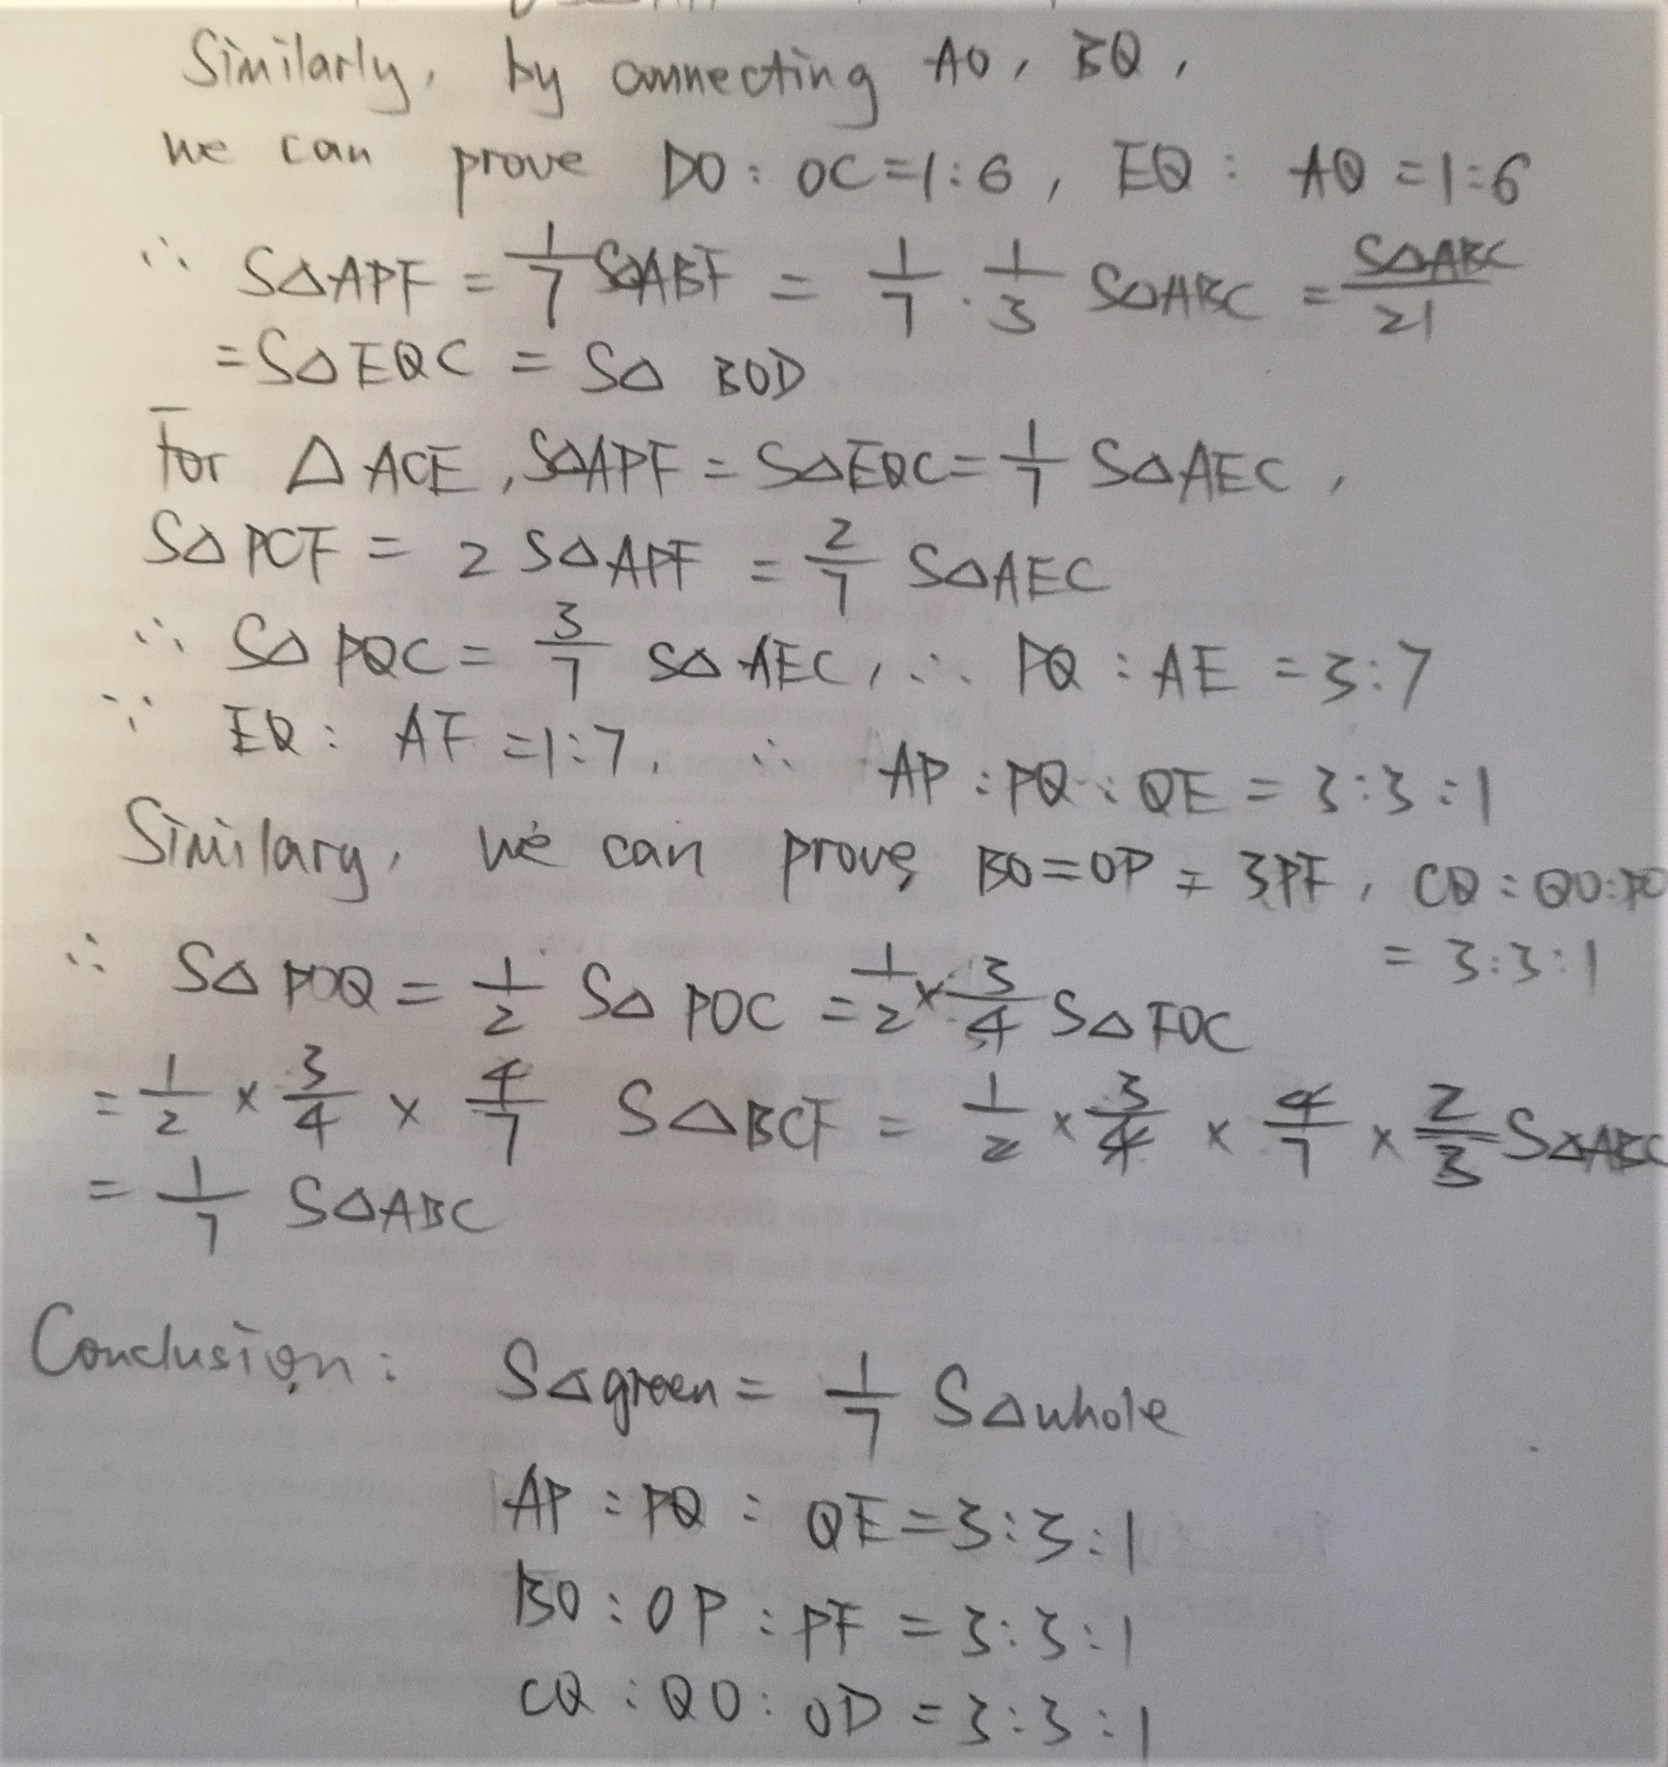 Similarly, by connecting AO, BQ,
we can prove DO : OC=1:6, EQ : AQ =1:6
∴ S△APF = 1/7 S△ABF = 1/7 · 1/3 S△ABC = S△ABC/21
=S△EQC = S△ BOD
For △ACE, S△APF = S△EQC= 1/7 S△AEC,
S△PCF = 2 S△APF = 2/7 S△AEC
∴ S△PQC = 3/7 S△AEC, ∴ PQ : AE = 3:7
∵ EQ : AF =1:7, ∴ AP : PQ : QE = 3:3:1
Similary, we can prove, BO=OP = 3PF, CQ : QO:
= 3:3:1
∴ S△POQ = 1/2 S△POC = 1/2 × 3/4 S△FOC
= 1/2 × 3/4 × 4/7 S△BCF = 1/2 × 3/4 × 4/7 × 2/3 S△ABC
= 1/7 S△ABC
Conclusion: S△green = 1/7 S△whole
AP : PQ : QE=3:3:1
BO : OP : PF = 3:3:1
CQ : QO : OD = 3:3:1